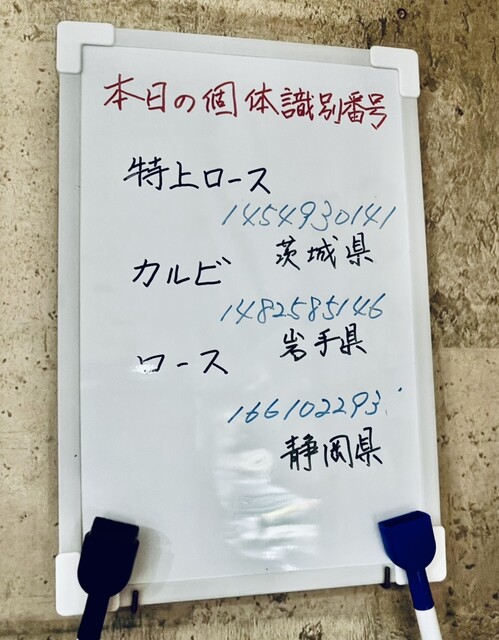 本日の個体識別番号
特上ロース
1454930141
茨城県
カルビ
1482585146
岩手県
ロース
166102293
静岡県